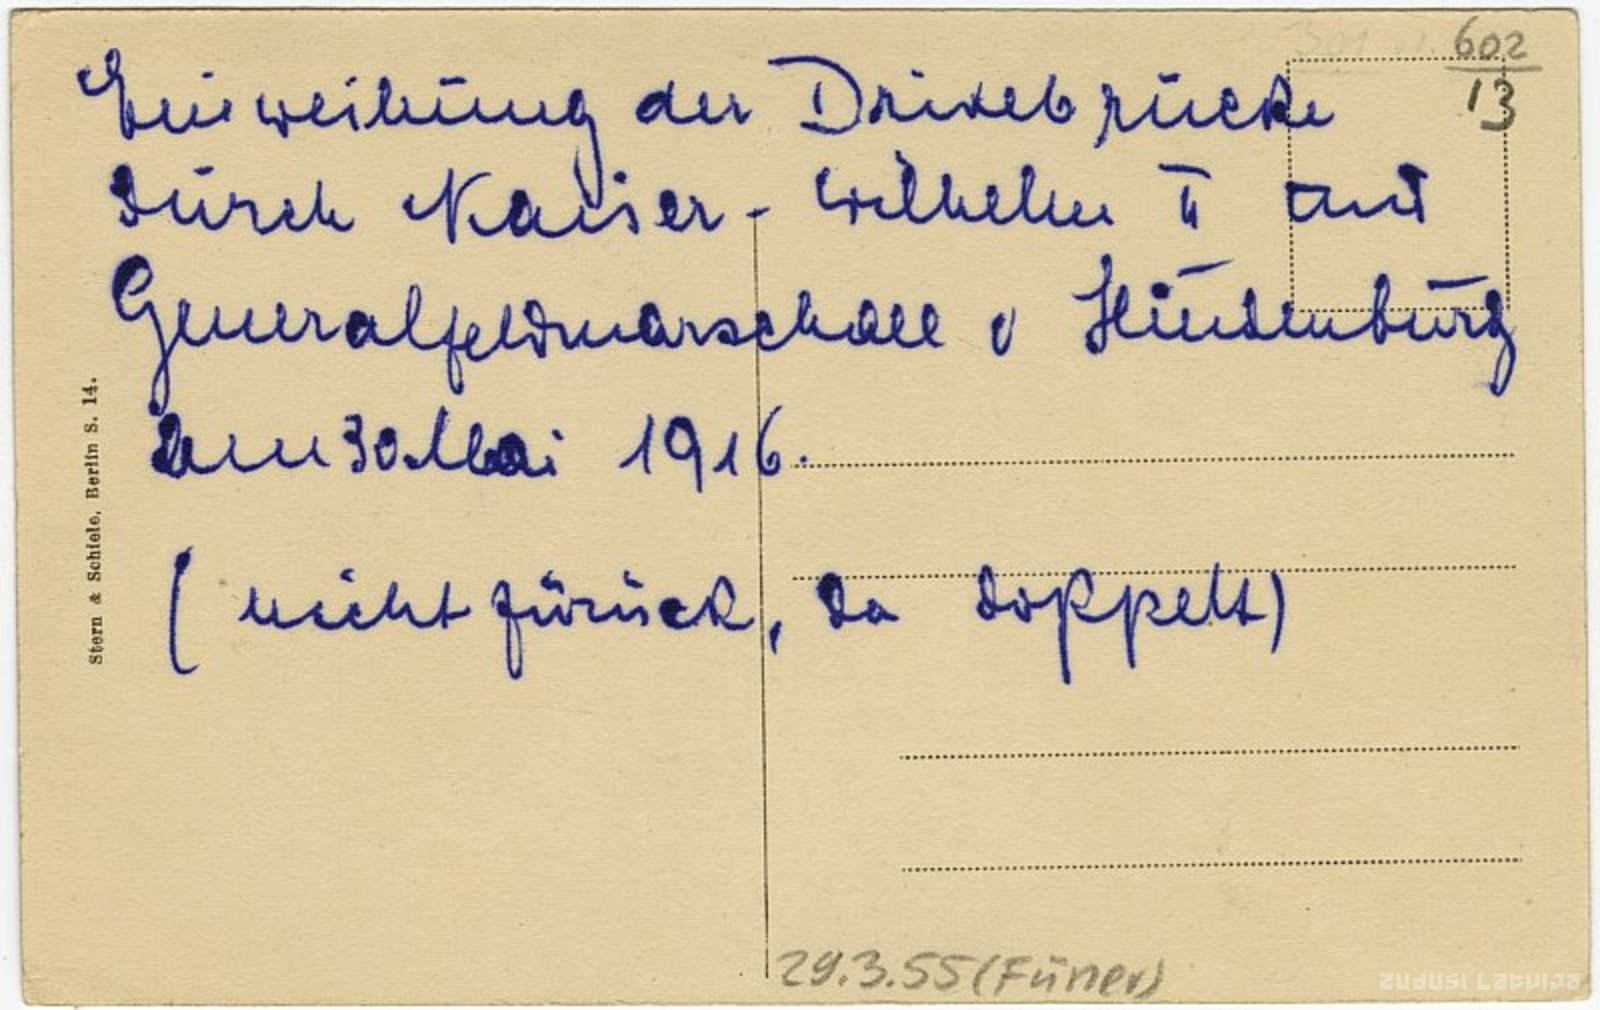 602
13
Einweihung der Drixebrücke
durch Kaiser - Wilhelm II und
Generalfeldmarschall v Hindenburg
am 30 Mai 1916.
( nicht zurück, da doppelt)
Stern & Schiele, Berlin S. 14.
29.3.55 (Füner)
zudusi Latvija